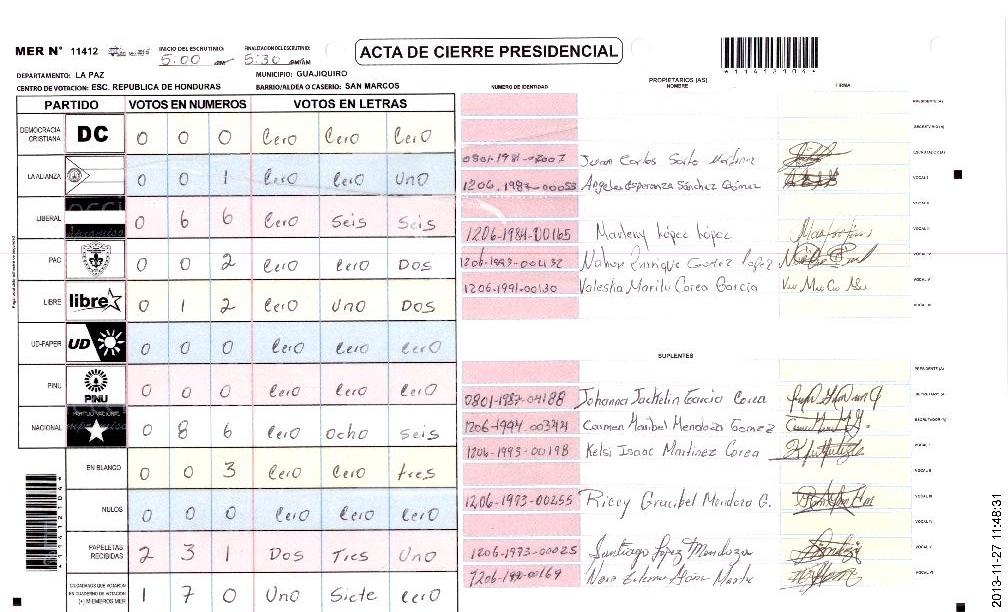 MER N° 11412
INICIO DEL ESCRUTINIO: 5:00
FINALIZACION DEL ESCRUTINIO: 5:30
ACTA DE CIERRE PRESIDENCIAL
DEPARTAMENTO: LA PAZ
MUNICIPIO: GUAJIQUIRO
CENTRO DE VOTACION: ESC. REPUBLICA DE HONDURAS
BARRIO/ALDEA O CASERIO: SAN MARCOS
PARTIDO VOTOS EN NUMEROS VOTOS EN LETRAS
DEMOCRACIA CRISTIANA DC 0 0 0 Cero Cero Cero
LA ALIANZA 0 0 1 Cero Cero Uno
LIBERAL 0 6 6 Cero Seis Seis
PAC 0 0 2 Cero Cero Dos
LIBRE libre 0 1 2 Cero Uno Dos
UD-FAPER UD 0 0 0 Cero Cero Cero
PINU PINU 0 0 0 Cero Cero Cero
NACIONAL 0 8 6 Cero Ocho Seis
EN BLANCO 0 0 3 Cero Cero tres
NULOS 0 0 0 Cero Cero Cero
PAPELETAS RECIBIDAS 2 3 1 Dos Tres Uno
CIUDADANOS QUE VOTARON EN CUADERNO DE VOTACION (+) MIEMBROS MER 1 7 0 Uno Siete Cero
NUMERO DE IDENTIDAD
PROPIETARIOS (AS)
NOMBRE
FIRMA
PRESIDENTE (A)
SECRETARIO (A)
Juan Carlos Soto Martinez ESCRUTADOR (A)
1206-1987-00053 Angeles Esperanza Sánchez Gómez VOCAL I
VOCAL II
1206-1984-00165 Marleny López López VOCAL III
Nahun Enrique Gomez Lopez VOCAL IV
1206-1991-00130 Valeshia Marilu Corea Garcia VOCAL V
VOCAL VI
SUPLENTES
PRESIDENTE (A)
0801-1987-04188 Johanna Jackelin Garcia Corea SECRETARIO (A)
1206-1994-00344 Carmen Maribel Mendoza Gomez ESCRUTADOR (A)
1206-1993-00198 Kelsi Isaac Martinez Corea VOCAL I
VOCAL II
1206-1993-00255 Riccy Gracibel Mendoza G. VOCAL III
VOCAL IV
1206-1973-00025 Santiago López Mendoza VOCAL V
VOCAL VI
2013-11-27 11:48:31